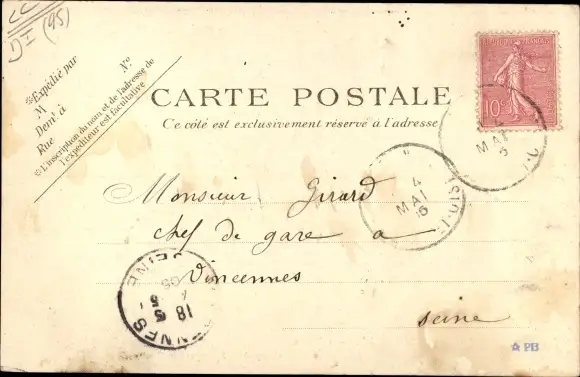 (95)
Expédié par
M
Nº
Demt à
Rue
L'inscription du nom et de l'adresse de
l'expéditeur est facultative
CARTE POSTALE
Ce côté est exclusivement réservé à l'adresse
10c
4
MAI
4
MAI
Monsieur Girard
chef de gare a
Vincennes
Seine
18
5
SEINE
PB